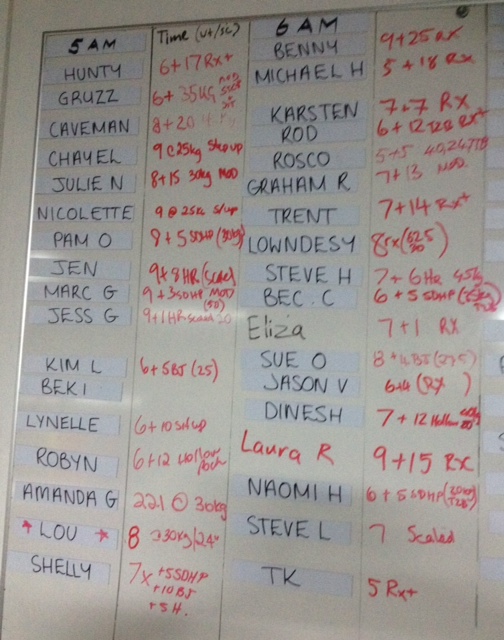 5 AM Time (ut/sc)
HUNTY 6+17 RX+
GRUZZ 6+35KG MOD
CAVEMAN 8+20
CHAYEL 9 @ 25kg Step up
JULIE N 8+15 30kg MOD
NICOLETTE 9 @ 25kg S/up
PAM O 8+5 SDHP (30kg)
JEN 9+8HR (scaled)
MARC G 9+3SDHP MOD (50)
JESS G 9+1HR scaled 20
KIM L 6+5BJ (25)
BEKI
LYNELLE 6+10 St/up
ROBYN 6+12 Hollow
AMANDA G 221 @ 30kg
* LOU * 8 @30kg/24"
SHELLY 7x +5SDHP
+10BJ
+5 H.
6 AM
BENNY 9+25 RX
MICHAEL H 5+18 RX
KARSTEN 7+7 RX
ROD 6+12 RX+
ROSCO 5+5
GRAHAM R 7+13 MOD.
TRENT 7+14 RX+
LOWNDESY 8rx
STEVE H 7+6HR 45kg
BEC. C 6+5 SDHP
Eliza 7+1 RX
SUE O 8+4BJ (27.5)
JASON V 6+4 (RX)
DINESH 7+12 Hollow
Laura R 9+15 RX
NAOMI H 6+5 SDHP
STEVE L 7 Scaled
TK 5 RX+